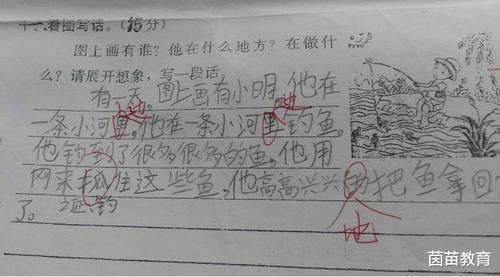 十一、看图写话。(15分)
图上画有谁？他在什么地方？在做什
么？请展开想象，写一段话。
有一天。图上画有小明，他在
一条小河里，他在一条小河里钓鱼。
他钓到了很多很多的鱼，他用
网来抓住这些鱼，他高高兴兴的把鱼拿回
了。
钓
地
茵苗教育